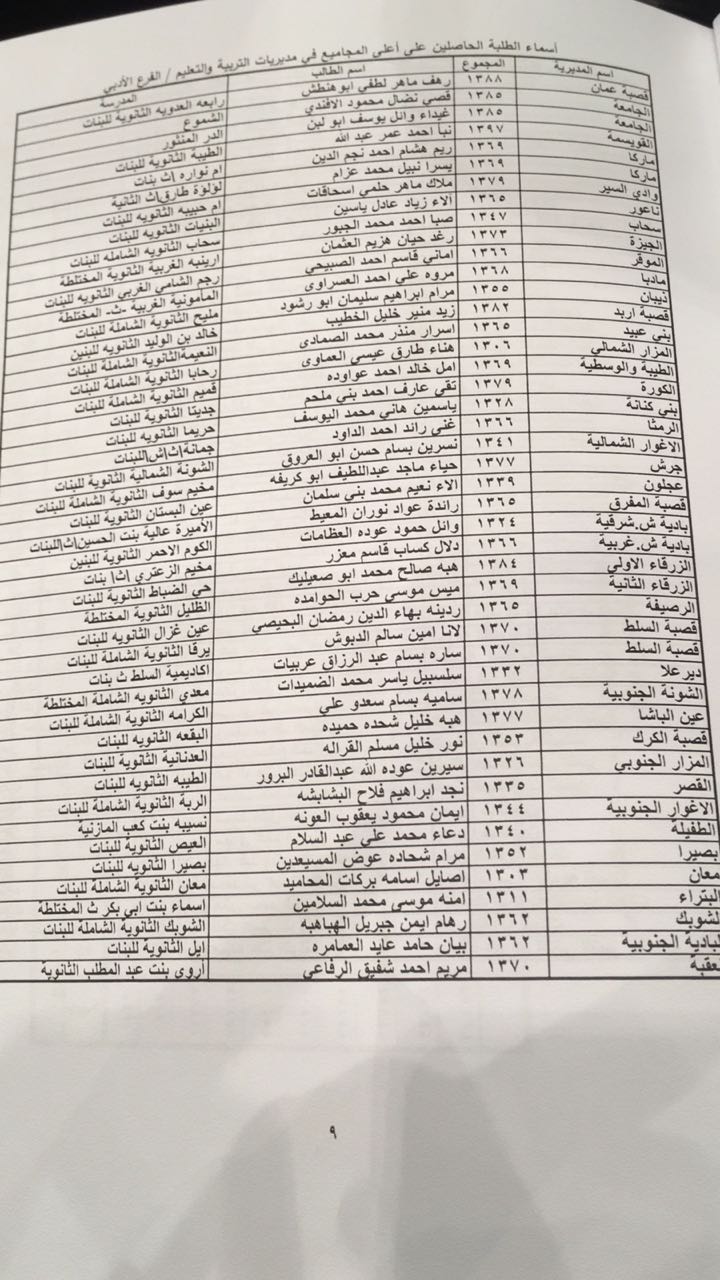 أسماء الطلبة الحاصلين على أعلى المجاميع في مديريات التربية والتعليم / الفرع الأدبي
اسم المديرية المجموع اسم الطالب المدرسة
قصبة عمان ١٣٨٨ رهف ماهر لطفي ابو هنطش رابعه العدويه الثانوية للبنات
الجامعة ١٣٨٥ قصي نضال محمود الافندي الشموع
الجامعة ١٣٨٥ غيداء وائل يوسف ابو لبن الدر المنثور
القويسمة ١٣٩٧ نبأ احمد عمر عبد الله الطيبة الثانوية للبنات
ماركا ١٣٦٩ ريم هشام احمد نجم الدين ام نواره اث بنات
ماركا ١٣٦٩ يسرا نبيل محمد عزام لولوة طارق\ث الثانية
وادي السير ١٣٧٩ ملاك ماهر حلمي اسحاقات ام حبيبه الثانويه للبنات
ناعور ١٣٦٥ الاء زياد عادل ياسين البنيات الثانوية للبنات
سحاب ١٣٤٧ صبا احمد محمد الجبور سحاب الثانوية الشامله للبنات
الجيزة ١٣٧٣ رغد حيان هزيم العثمان ارينبه الغربية الثانوية المختلطة
الموقر ١٣٦٦ اماني قاسم احمد الصبيحي رجم الشامي الغربي الثانويه للبنات
مادبا ١٣٦٨ مروه علي احمد العسراوى المأمونية الغربية -ث- المختلطة
ذيبان ١٣٥٥ مرام ابراهيم سليمان ابو رشود مليح الثانوية الشاملة للبنات
قصبة اربد ١٣٨٢ زيد منير خليل الخطيب خالد بن الوليد الثانويه للبنين
بني عبيد ١٣٦٥ اسرار منذر محمد الصمادى النعيمةالثانوية الشاملة للبنات
المزار الشمالي ١٣٠٦ هناء طارق عيسى العماوى رحابا الثانوية الشاملة للبنات
الطيبة والوسطية ١٣٦٩ امل خالد احمد عواوده قميم الثانوية الشاملة للبنات
الكورة ١٣٧٩ تقى عارف احمد بني ملحم جديتا الثانوية للبنات
بني كنانة ١٣٢٨ ياسمين هاني محمد اليوسف حريما الثانويه للبنات
الرمثا ١٣٦٦ غنى رائد احمد الداود جمانة\ث\ش\للبنات
الاغوار الشمالية ١٣٤١ نسرين بسام حسن ابو العروق الشونة الشمالية الثانوية للبنات
جرش ١٣٧٧ حياء ماجد عبداللطيف ابو كريفه مخيم سوف الثانوية الشاملة للبنات
عجلون ١٣٣٩ الاء نعيم محمد بني سلمان عين البستان الثانوية للبنات
قصبة المفرق ١٣٦٥ رائدة عواد نوران المعيط الأميرة عالية بنت الحسين\ث\للبنات
بادية ش.شرقية ١٣٢٤ وائل حمود عوده العظامات الكوم الاحمر الثانوية للبنين
بادية ش.غربية ١٣٦٦ دلال كساب قاسم معزر مخيم الزعتري \ث\ بنات
الزرقاء الاولى ١٣٨٤ هبه صالح محمد ابو صعيليك حي الضباط الثانوية للبنات
الزرقاء الثانية ١٣٦٩ ميس موسى حرب الحوامده الظليل الثانوية المختلطة
الرصيفة ١٣٦٥ ردينه بهاء الدين رمضان البحيصي عين غزال الثانويه للبنات
قصبة السلط ١٣٧٠ لانا امين سالم الدبوش يرقا الثانوية الشاملة للبنات
قصبة السلط ١٣٧٠ ساره بسام عبد الرزاق عربيات اكاديمية السلط ث بنات
ديرعلا ١٣٣٢ سلسبيل ياسر محمد الضميدات معدي الثانويه الشاملة المختلطة
الشونة الجنوبية ١٣٧٨ ساميه بسام سعدو علي الكرامه الثانوية الشاملة للبنات
عين الباشا ١٣٧٧ هبه خليل شحده حميده البقعه الثانويه للبنات
قصبة الكرك ١٣٥٣ نور خليل مسلم القراله العدنانية الثانوية للبنات
المزار الجنوبي ١٣٢٦ سيرين عوده الله عبدالقادر البرور الطيبه الثانويه للبنات
القصر ١٣٣٥ نجد ابراهيم فلاح البشابشه الربة الثانوية الشاملة للبنات
الاغوار الجنوبية ١٣٤٤ ايمان محمود يعقوب العونه نسيبه بنت كعب المازنية
الطفيلة ١٣٤٠ دعاء محمد علي عبد السلام العيص الثانوية للبنات
بصيرا ١٣٥٢ مرام شحاده عوض المسيعدين بصيرا الثانويه للبنات
معان ١٣٠٣ اصايل اسامه بركات المحاميد معان الثانوية الشاملة للبنات
البتراء ١٣١١ امنه موسى محمد السلامين اسماء بنت ابي بكر ث المختلطة
الشوبك ١٣٦٢ رهام ايمن جبريل الهباهبه الشوبك الثانوية الشاملة للبنات
لبادية الجنوبية ١٣٦٢ بيان حامد عايد العمامره ايل الثانوية للبنات
عقبة ١٣٧٠ مريم احمد شفيق الرفاعي أروى بنت عبد المطلب الثانوية
٩